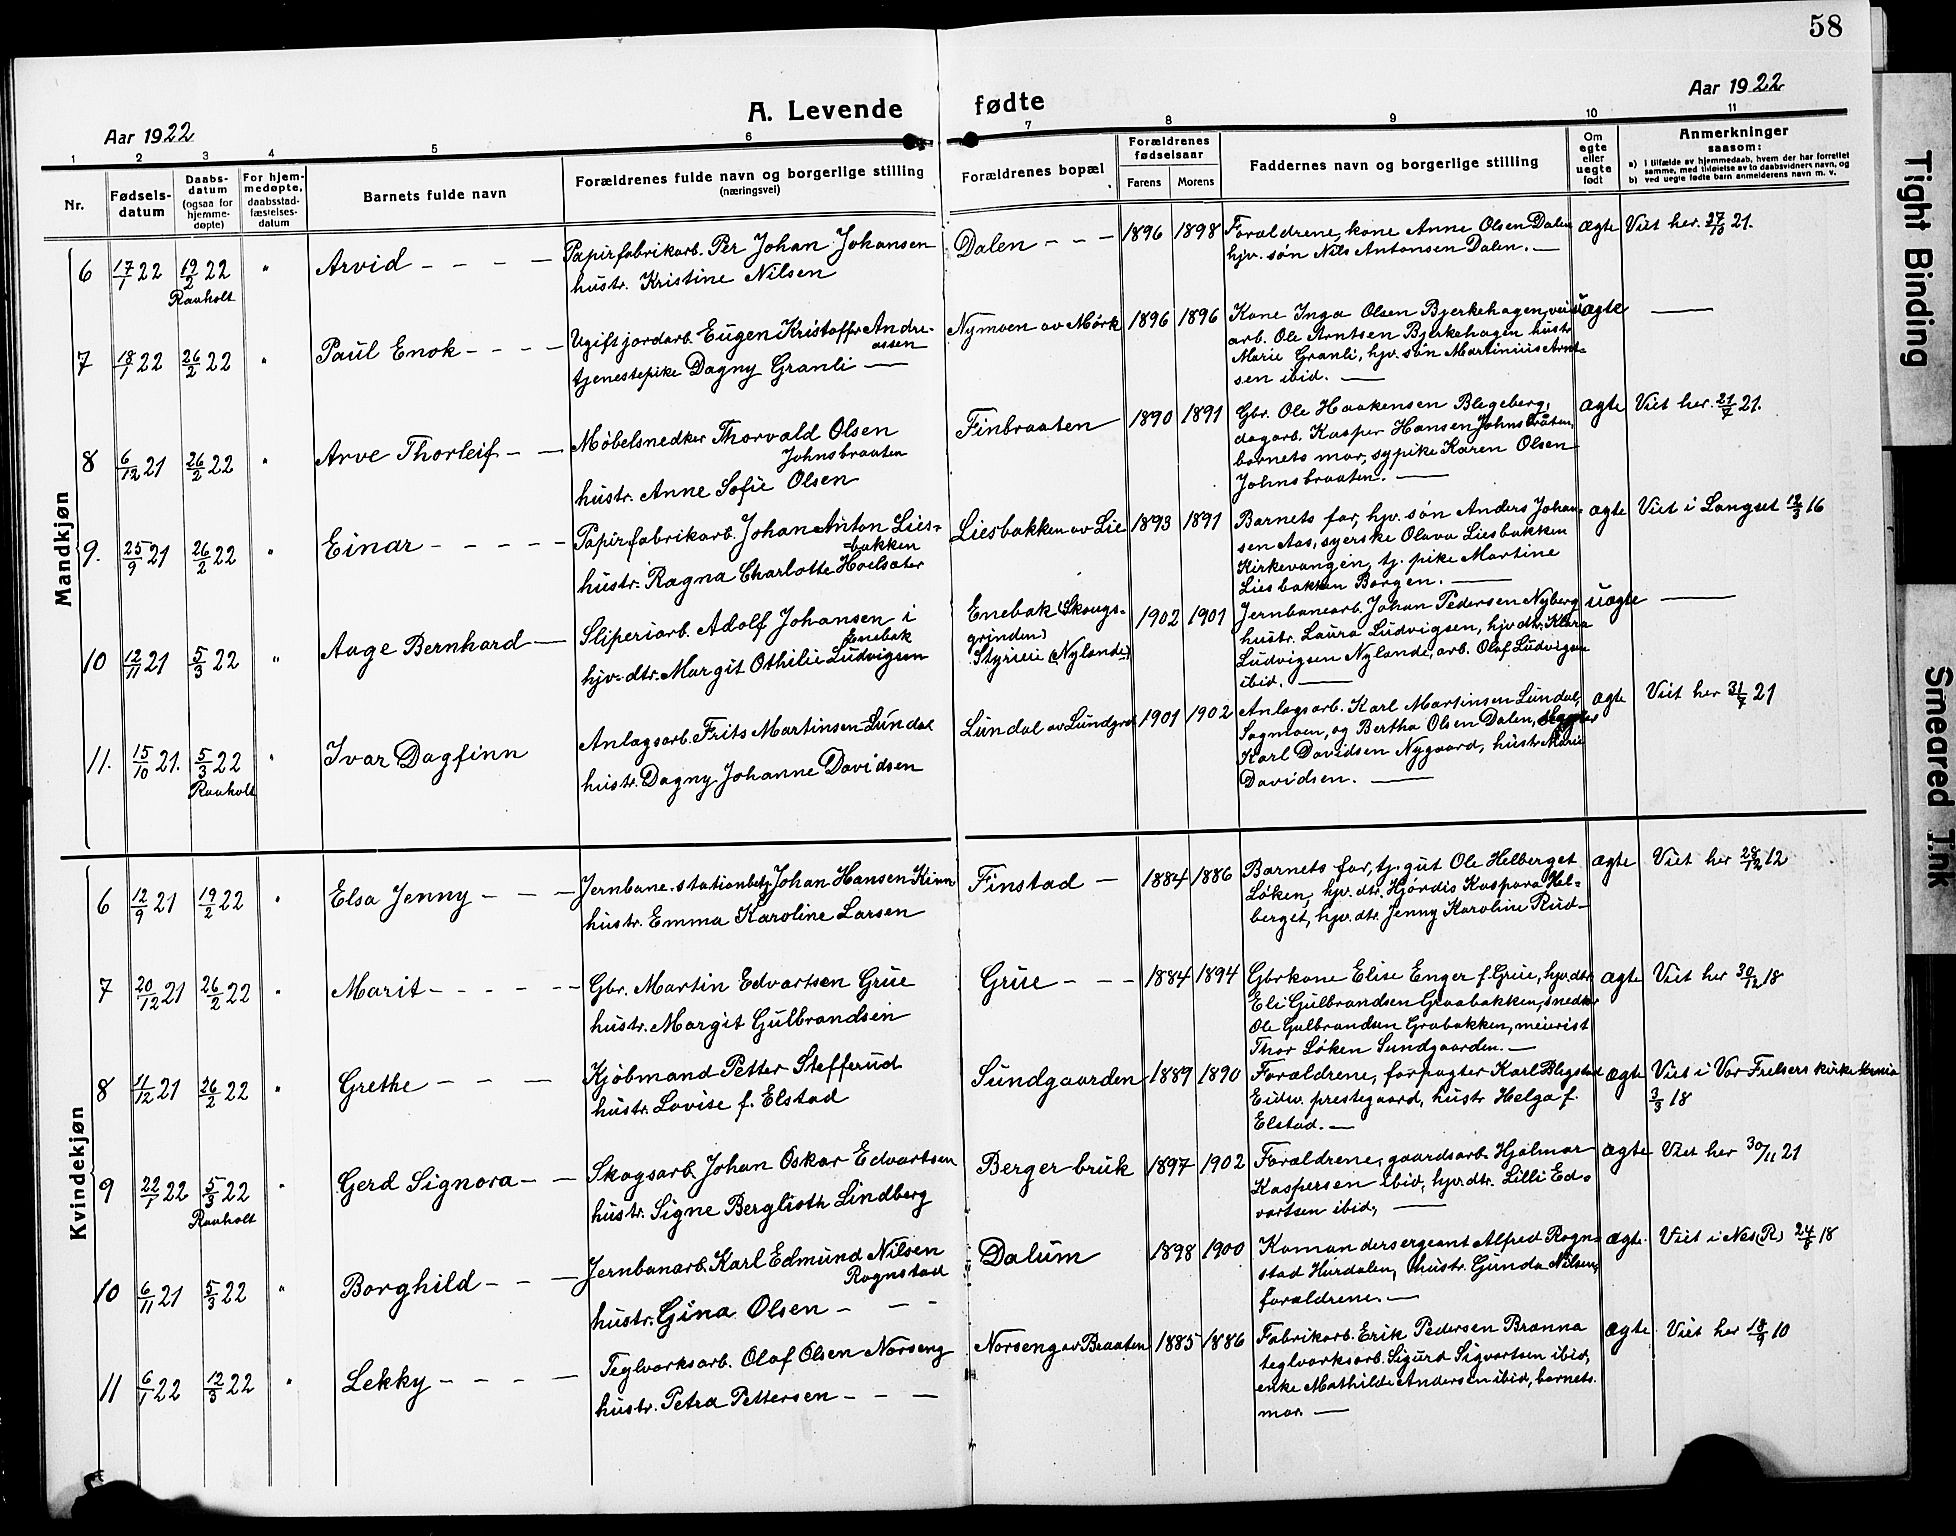 58
Aar 1922
A. Levende
fødte
Aar 1922
1 2 3 4 5 6 7 8 9 10 11
Nr.
Fødsels-
datum
Daabs-
datum
(ogsaa for
hjemme-
døpte)
For hjem-
medøpte,
daabsstad-
fæstelses-
datum
Barnets fulde navn
Forældrenes fulde navn og borgerlige stilling
(næringsvei)
Forældrenes bopæl
Forældrenes
fødselsaar
Farens Morens
Faddernes navn og borgerlige stilling
Om
ægte
eller
uegte
født
Anmerkninger
saasom:
a) i tilfælde av hjemmedaab, hvem der har forrettet
samme, med tilføielse av to daabsvidners navn, og
b) ved uegte fødte barn anmelderens navn m. v.
Mandkjøn
6 17/1 22 19/2 22 " Arvid - - - -
Raaholt
Papirfabrikarb. Per Johan Johansen
hustr. Kristine Nilsen
Dalen - - - 1896 1898
Forældrene, kone Anne Olsen Dalen
hjv. søn Nils Antonsen Dalen. —
ægte Viet her. 27/10 21.
7 18/1 22 26/2 22 " Paul Enok - - - -
Ugift jordarb. Eugen Kristoffer Andre-
assen
tjenestepike Dagny Granli —
Nymoen av Mørk 1896 1896
Kone Inga Olsen Bjerkehagen, vei
arb. Ole Arntsen Bjerkehagen hustr.
Marie Granli, hjv. søn Martinius Arnt-
sen ibid. —
uægte —
8 6/12 21 26/2 22 " Arve Thorleif - -
Møbelsnedker Thorvald Olsen
Johnsbraaten
hustr. Anne Sofie Olsen
Finbraaten 1890 1891
Gbr. Ole Haakensen Blegeberg,
dagarb. Kasper Hansen Johnsbråten,
barnets mor, sypike Karen Olsen
Johnsbraaten. —
ægte Viet her. 21/7 21.
9. 25/9 21 26/2 22 " Einar - - - - -
Papirfabrikarb. Johan Anton Lies-
=bakken
hustr. Ragna Charlotte Hoelsæter
Liesbakken av Lie 1893 1891
Barnets far, hjv. søn Anders Johan-
sen Aas, syerske Olava Liesbakken
Kirkevangen, tj. pike Martine
Liesbakken Borgen. —
ægte Viet i Langset 12/3 16
10 12/11 21 5/3 22 " Aage Bernhard —
Sliperiarb. Adolf Johansen i
Enebak
hjv. dtr. Margit Othilie Ludvigsen
Enebak (Skougs-
grinden)
Styrieie (Nylande)
1902 1901
Jernbanearb. Johan Pedersen Nyberg
hustr. Laura Ludvigsen, hjv. dtr. Klara
Ludvigsen Nylande, arb. Olaf Ludvigsen
ibid. —
uægte —
11. 15/10 21. 5/3 22 " Ivar Dagfinn
Raaholt
Anlægsarb. Frits Martinsen Lundal
hustr. Dagny Johanne Davidsen
Lundal av Lundgra 1901 1902
Anlægsarb. Karl Martinsen Lundal,
Sagmoen, og Bertha Olsen Dalen,
Karl Davidsen Nygaard, hustr. Marie
Davidsen. —
ægte Viet her 31/7 21
Kvindekjøn
6 12/9 21 19/2 22 " Elsa Jenny - - -
Jernbane-stationbetj. Johan Hansen Kinn
hustr. Emma Karoline Larsen
Finstad - 1884 1886
Barnets far, tj. gut Ole Helberget
Løken, hjv. dtr. Hjørdis Kaspara Hel-
berget, hjv. dtr. Jenny Karoline Rud-
ægte Viet her 28/12 12
7 20/12 21 26/2 22 " Marit - - - - -
Gbr. Martin Edvartsen Grue
hustr. Margit Gulbrandsen
Grue - - - 1884 1894
Gbrkone Elise Enger f. Grue, hjv. dtr.
Eli Gulbrandsen Graabakken, snedker
Ole Gulbrandsen Grabakken, meierist
Thor Løken Sundgaarden. —
ægte Viet her 30/12 18
8 11/12 21 26/2 22 " Grethe - - -
Kjøbmand Petter Stefferud
hustr. Lovise f. Elstad
Sundgaarden 1889 1890
Forældrene, forpagter Karl Blegstad
Eidsv. prestegaard, hustr Helga f.
Elstad. —
ægte Viet i Vor Frelsers kirke Krania
3/3 18
9 22/1 22 5/3 22 " Gerd Signora - -
Raaholt
Skogsarb. Johan Oskar Edvartsen
hustr. Signe Berglioth Lindberg
Berger bruk 1897 1902
Forældrene, gaardsarb. Hjalmar
Kaspersen ibid, hjv. dtr. Lilli Ed-
vartsen ibid, —
ægte Viet her 30/11 21
10 6/11 21 5/3 22 " Borghild - - -
Jernbanarb. Karl Edmund Nilsen
Rognstad
hustr. Gina Olsen - - -
Dalum 1898 1900
Komandersergeant Alfred Rogn-
stad Hurdalen, hustr. Gunda Nilsen,
forældrene. —
ægte. Viet i Nes (R) 24/8 18
11 6/1 22 12/3 22 " Lekky - - - -
Teglværksarb. Olaf Olsen Norseng
hustr. Petra Pettersen - - -
Norseng av Braaten 1885 1886
Fabrikarb. Erik Pedersen Brænna
teglværksarb. Sigurd Sigvartsen ibid,
enke Mathilde Andersen ibid, barnets
mor. —
ægte. Viet her 18/9 10
Tight Binding
Smeared Ink